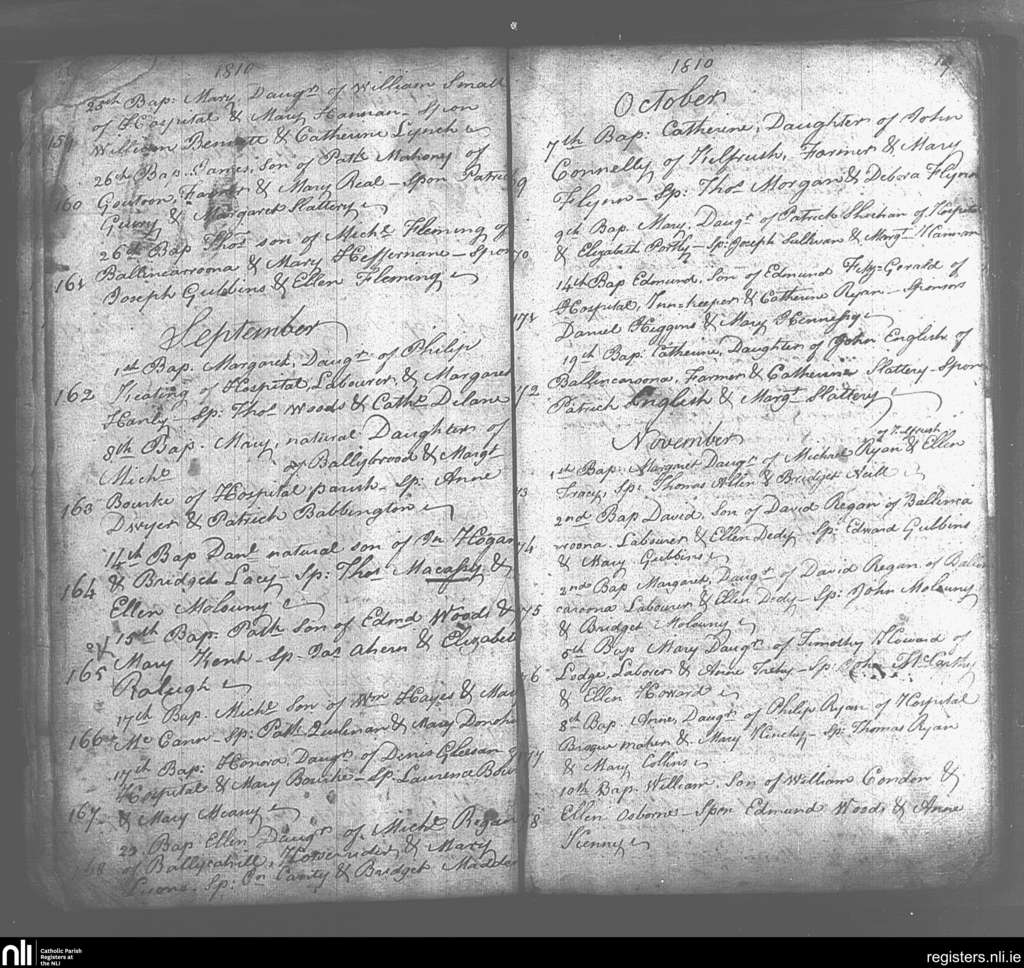 1810
25th Bap: Mary, Daugr of William Small
of Hospital & Mary Hannan - Spon
159 William Bennett & Catherine Lynch
26th Bap. James, Son of Patk Mahony of
160 Farmer & Mary Real - Spon Patrick
& Margaret Slattery
26th Bap Thos son of Michl Fleming of
161 Ballincarroona & Mary Heffernane - Spon
Joseph Gubbins & Ellen Fleming
September
1st Bap. Margaret, Daugr of Philip
162 Keating of Hospital, Labourer, & Margaret
Hanly - Sp: Thos Woods & Cathe Delane
8th Bap. Mary, natural Daughter of
Michl of Ballybrood & Margt
163 Bourke of Hospital parish - Sp: Anne
Dwyer & Patrick Babbington
14th Bap Danl natural son of Jn Hogan
164 & Bridget Lacy - Sp: Thos &
Ellen Molouny
15th Bap. Patk Son of Edmd Woods &
165 Mary Kent - Sp. Jas Ahern & Elizabet
Raleigh
17th Bap. Michl Son of Wm Hayes & Mary
166 Mc Cann - Sp: Patk Quilinan & Mary Donohu
17th Bap: Honora, Daugr of Denis Gleeson of
Hospital & Mary Bourke - Sp: Laurence
167 & Mary Meany
23 Bap Ellen Daugr of Michl Regan
168 of Ballycahill, & Mary
Sp: Jn Canty & Bridget Madden
1810
October
7th Bap: Catherine, Daughter of John
Connelly of Kilfrush, Farmer & Mary
9 Flynn - Sp: Thos Morgan & Debora Flynn
9th Bap. Mary, Daugr of Patrick Shehan of Hospital
70 & Elizabeth - Sp: Joseph Sullivan & Margt Hannan
14th Bap Edmund, Son of Edmund Fitz=Gerald of
Hospital, Inn=keeper & Catherine Ryan - Sponsors
171 Daniel Higgins & Mary Hennessy
19th Bap. Catherine, Daughter of John English of
72 Ballincaroona, Farmer & Catherine Slattery - Spon
Patrick English & Margt Slattery
November
of Kilfrush
1st Bap: Margaret Daugr of Michael Ryan & Ellen
73 Tracy, Sp: Thomas Allen & Bridget Neill
2nd Bap David, Son of David Regan of Ballinca
74 roona. Labourer & Ellen Dedy - Sp: Edward Gubbins
& Mary Gubbins
2nd Bap Margaret, Daugr of David Regan of Ballin
75 caroona Labourer & Ellen Dedy - Sp: John Molouny
& Bridget Molouny
5th Bap Mary Daugr of Timothy Howard of
6 Lodge, Laborer & Anne - Sp: John McCarthy
& Ellen Howard
8th Bap. Anne, Daugr of Philip Ryan of Hospital
177 Brogue maker & Mary - Sp: Thomas Ryan
& Mary Collins
10th Bap. William, Son of William Condon &
8 Ellen Osborne - Spon Edmund Woods & Anne
Kienny
nli
Catholic Parish
Registers at
the NLI
registers.nli.ie